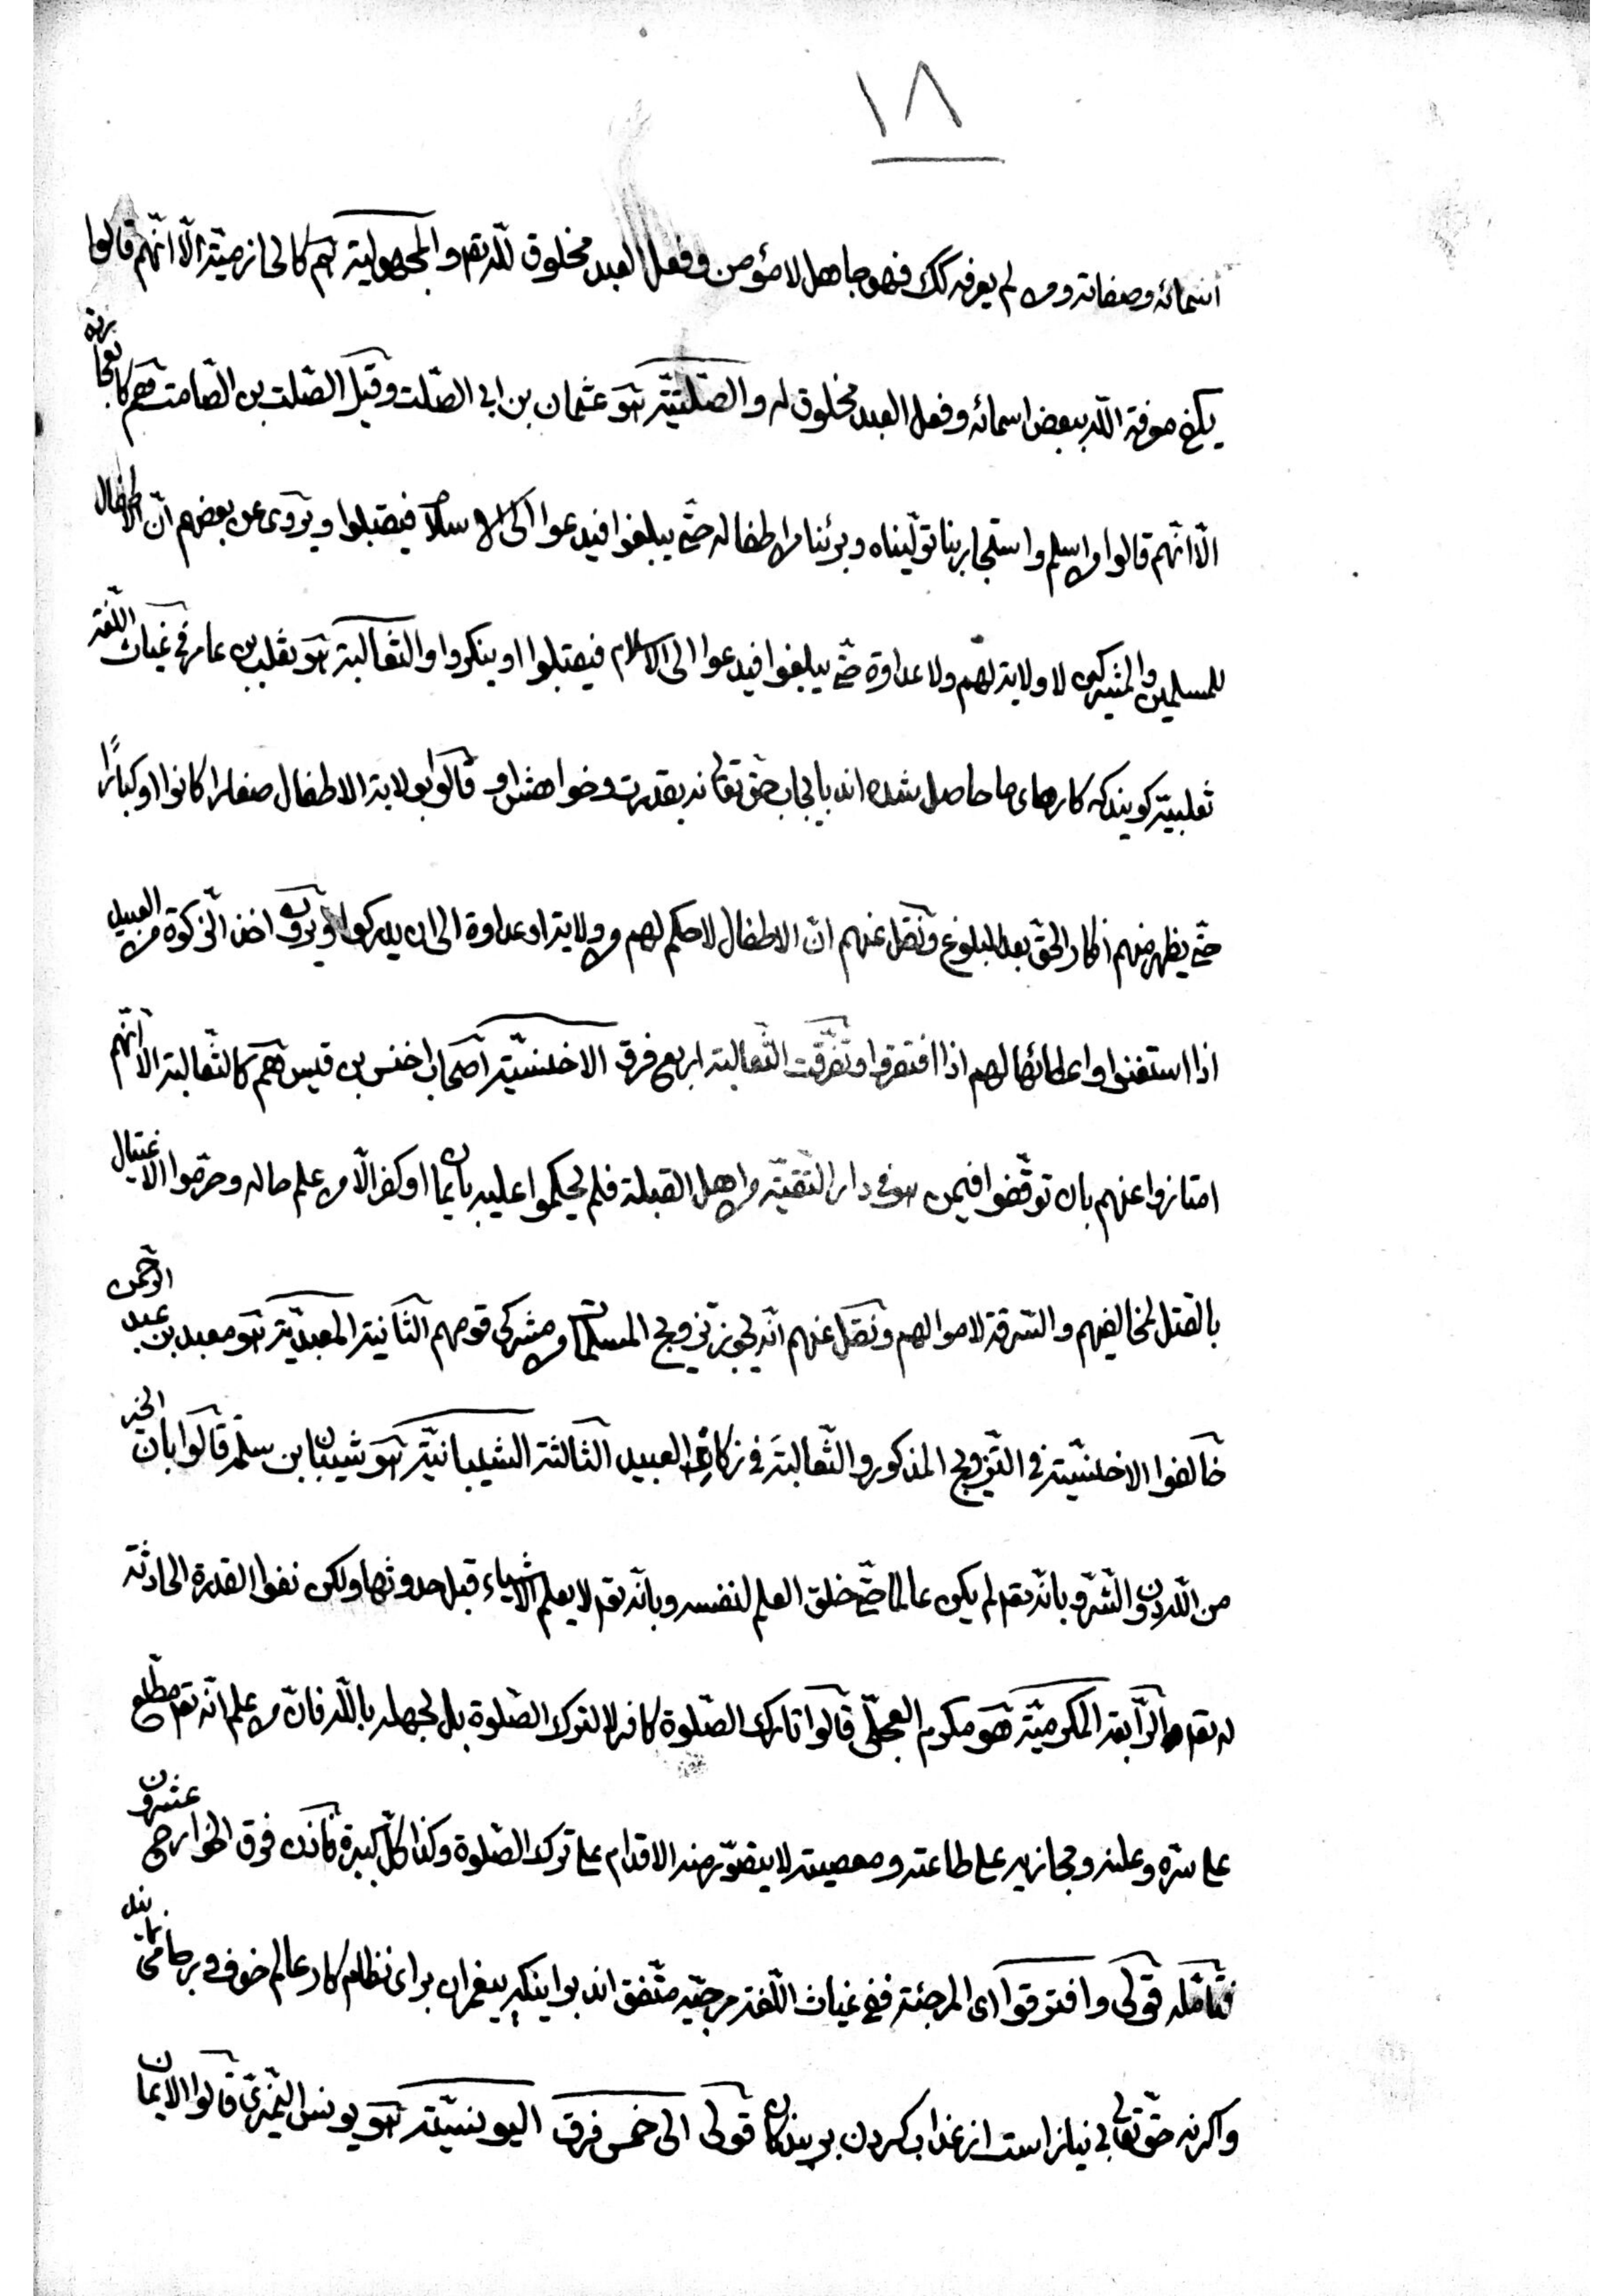 ١٨
اسمائه وصفاته ومن لم يعرفه كك فهو جاهل لا مؤمن وفعل العبد مخلوق للّه تعم والمجهولية هم كالحازميّة الّا انّهم قالوا
يكفى معرفة اللّه ببعض اسمائه وفعل العبد مخلوق له والصّلتيّة هو عثمان بن ابى الصّلت وقيل الصّلت بن الصّامت هم كالعجاردة
الّا انّهم قالوا من اسلم واستجار بنا تولّيناه وبرئنا من اطفاله حتّى يبلغوا فيدعوا الى الاسلام فيقبلوا ويروى عن بعضهم انّ الاطفال
للمسلمين والمشركين لا ولاية لهم ولا عداوة حتّى يبلغوا فيدعوا الى الاسلام فيقبلوا او ينكروا والثّعالبة هو ثعلب بن عامر فى غياث اللّغة
ثعلبيّة كويند كه كارهاى ما حاصل شده اند بايجاب حق تعالى نه بقدرت وخواهش او قالوا بولاية الاطفال صغارا كانوا او كبارًا
حتّى يظهر منهم انكار الحقّ بعد البلوغ ونقل عنهم انّ الاطفال لا حكم لهم من ولاية او عداوة الى ان يدركوا ويرون اخذ الزّكوة من العبيد
اذا استغنوا واعطائها لهم اذا افتقروا وتفرّقت الثّعالبة اربع فرق الاخنسيّة اصحاب اخنس بن قيس هم كالثّعالبة الّا انّهم
امتازوا عنهم بان توقّفوا فيمن هو فى دار التّقيّة من اهل القبلة فلم يحكموا عليه بايمان او كفر الّا من علم حاله وحرّموا الاغتيال
بالقتل لمخالفيهم والسّرقة لاموالهم ونقل عنهم انّه يجوز تزويج المسلمات من مشركى قومهم الثّانية المعبديّة هو معبد بن عبد الرّحمن
خالفوا الاخنسيّة فى التّزويج المذكور والثّعالبة فى زكاة العبيد الثالثة الشيبانيّة هو شيبان بن سلمة قالوا بانّ الخير
من اللّه دون الشّر وبانّه تعم لم يكن عالما حتّى خلق العلم لنفسه وبانّه تعم لا يعلم الاشياء قبل حدوثها ولكن نفوا القدرة الحادثة
له تعم والرّابعة المكرميّة هو مكرم العجلىّ قالوا تارك الصّلوة كافر لا لترك الصّلوة بل لجهله باللّه فانّ من علم انّه تعم مطّلع
على سرّه وعلنه ومجازيه على طاعته ومعصيته لا يتصوّر منه الاقدام على ترك الصّلوة وكذا كلّ كبيرة فاذن فرق الخوارج عشرون
فتامّله قولى وافترقوا اى المرجئة ففى غياث اللّغة مرجيّه متّفق اند بر اينكه پيغمبران براى نظام كار عالم خوف و برجا مى نمايند
واكر نه حقّ تعالى بى نياز است از عذاب كردن بر بندكان قولى الى خمس فرق اليونسيّة هو يونس النميرىّ قالوا الايمان